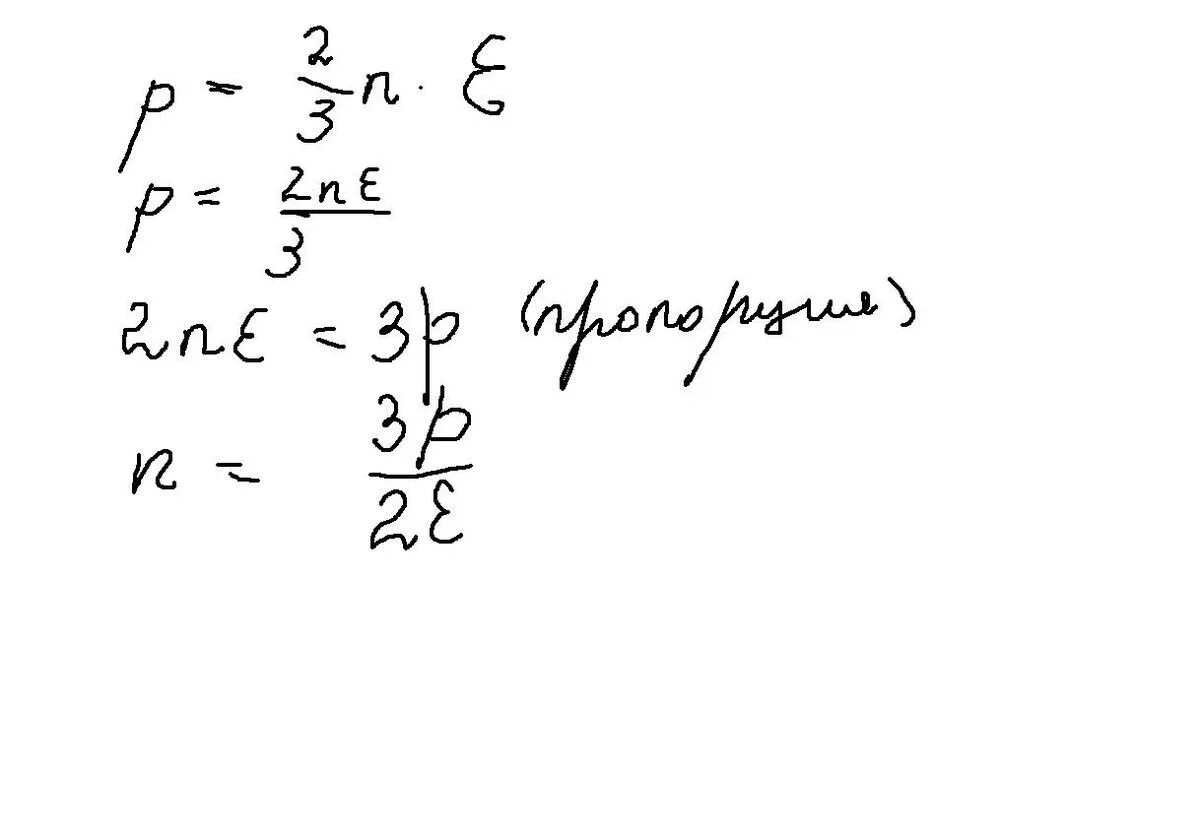 p = 2/3 n · ε
p = 2nε/3
2nε = 3p (пропорция)
n = 3p/2ε